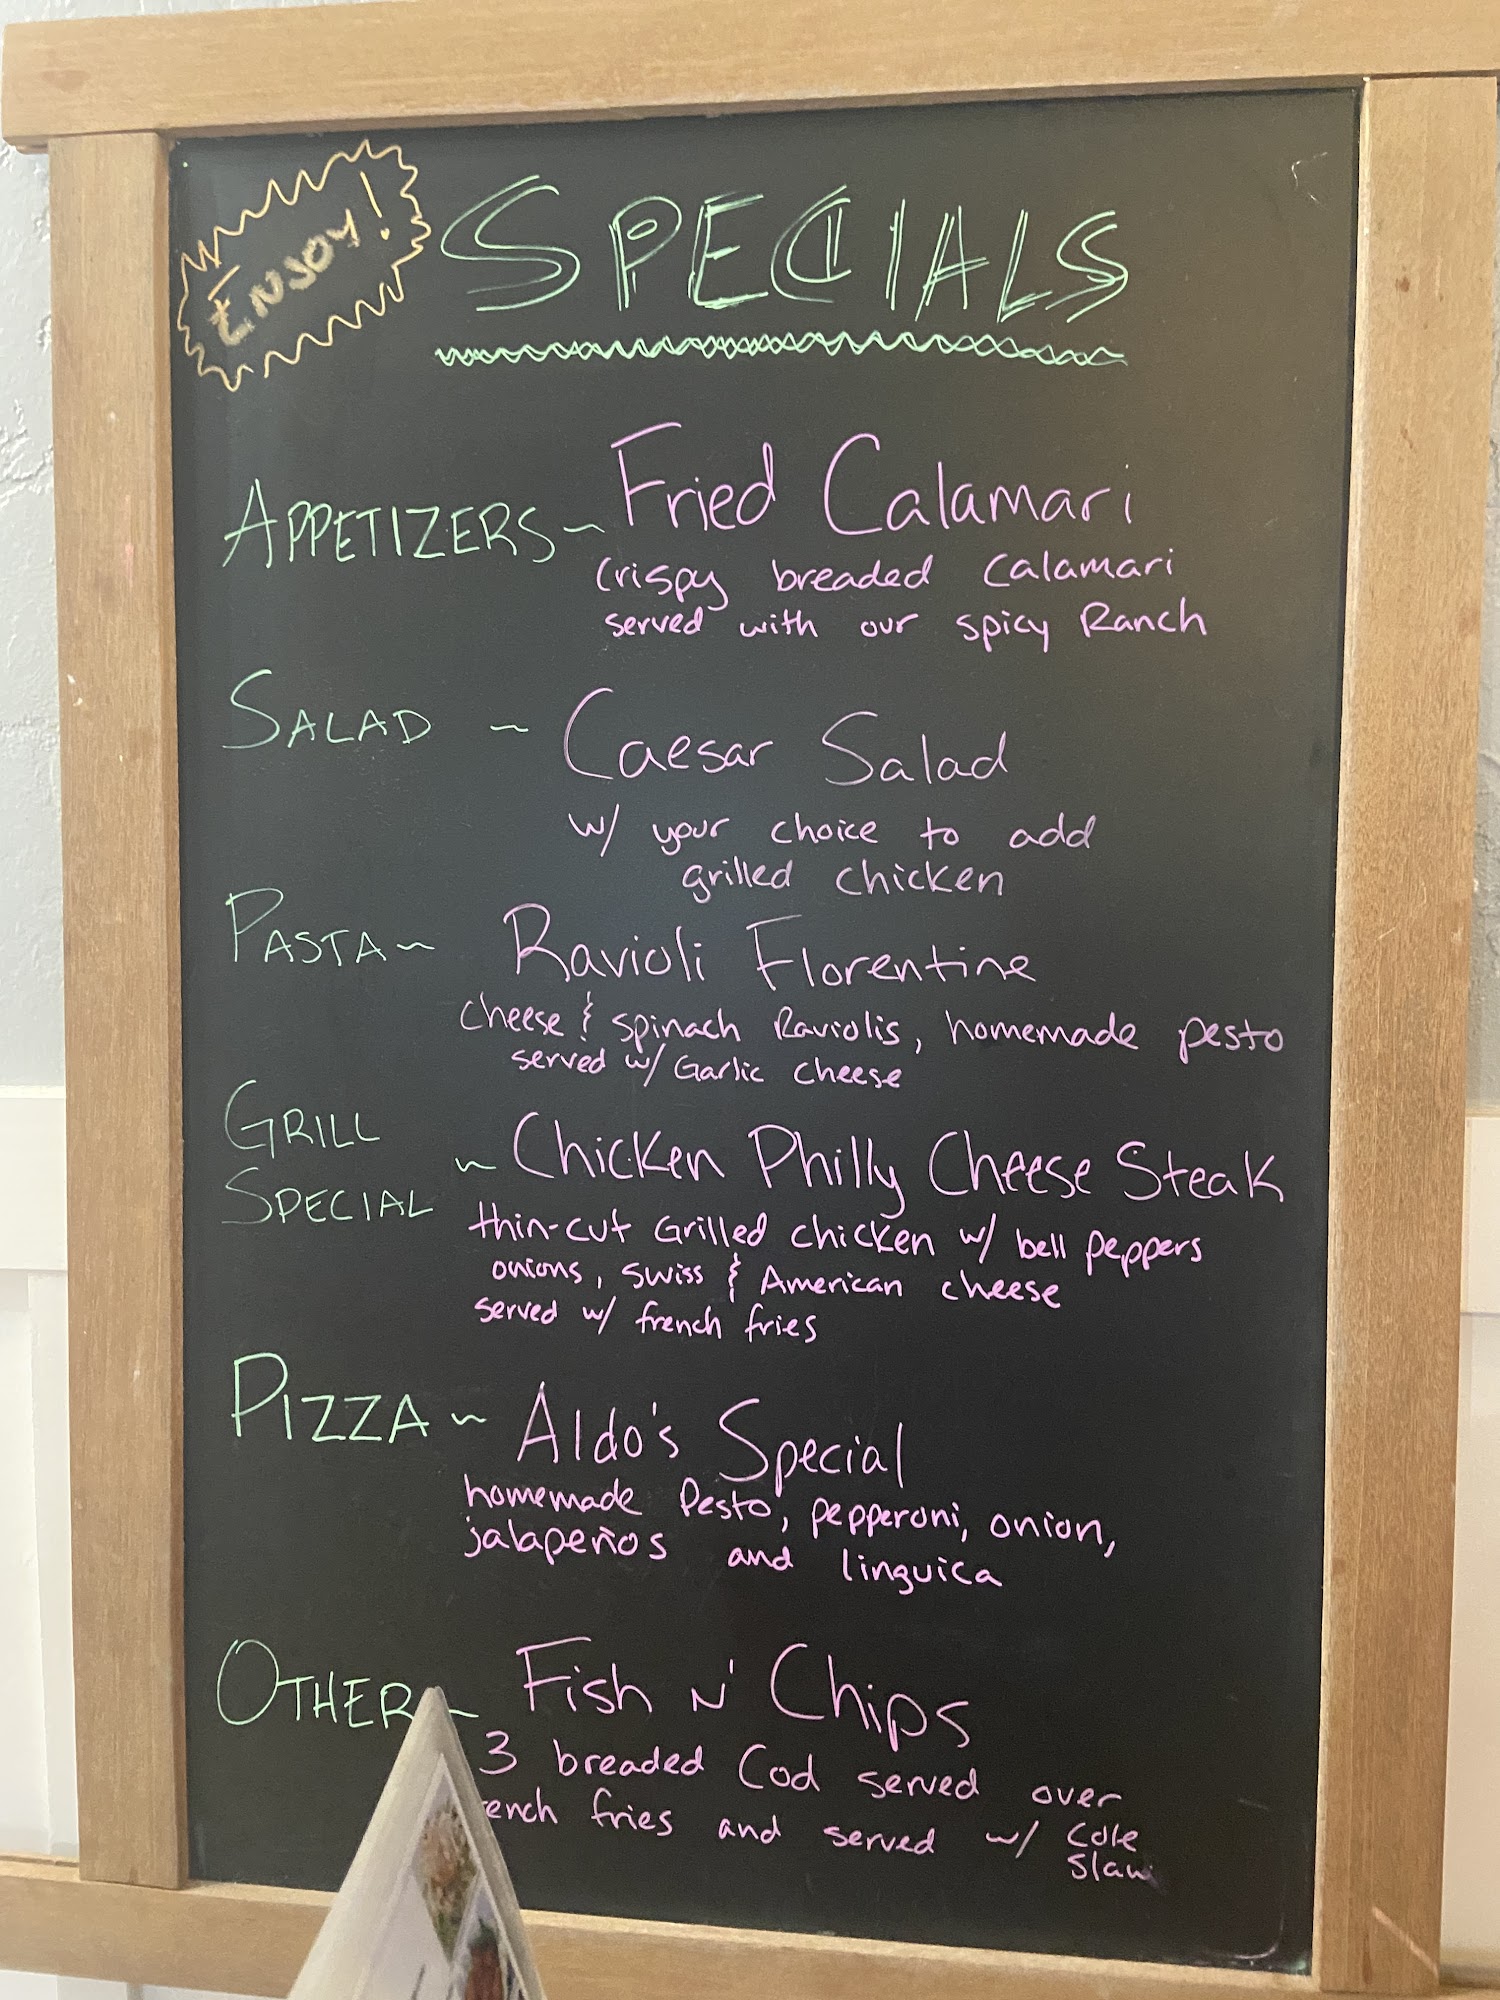 ENJOY!
SPECIALS
APPETIZERS~ Fried Calamari
crispy breaded calamari
served with our spicy Ranch
SALAD ~ Caesar Salad
w/ your choice to add
grilled chicken
PASTA~ Ravioli Florentine
cheese & spinach Raviolis, homemade pesto
served w/ Garlic cheese
GRILL
SPECIAL ~ Chicken Philly Cheese Steak
thin-cut Grilled chicken w/ bell peppers
onions, swiss & American cheese
served w/ french fries
PIZZA~ Aldo's Special
homemade Pesto, pepperoni, onion,
jalapeños and linguica
OTHER~ Fish N' Chips
3 breaded Cod served over
ench fries and served w/ Cole
Slaw